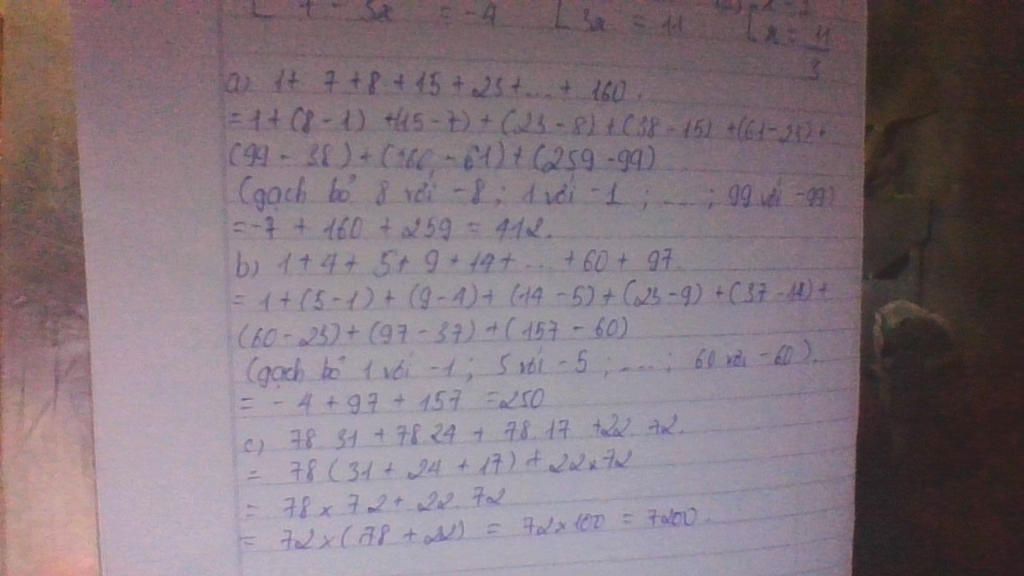 7 - 3x = -4 [ 3x = 11 [ x = 11/3
a) 1 + 7 + 8 + 15 + 23 + ... + 160.
= 1 + (8 - 1) + (15 - 7) + (23 - 8) + (38 - 15) + (61 - 23) +
(99 - 38) + (160 - 61) + (259 - 99)
(gạch bỏ 8 với -8 ; 1 với -1 ; .... ; 99 với -99)
= -7 + 160 + 259 = 412.
b) 1 + 4 + 5 + 9 + 14 + ... + 60 + 97.
= 1 + (5 - 1) + (9 - 4) + (14 - 5) + (23 - 9) + (37 - 14) +
(60 - 23) + (97 - 37) + (157 - 60)
(gạch bỏ 1 với -1 ; 5 với -5 ; .... ; 60 với -60).
= - 4 + 97 + 157 = 250
c) 78.31 + 78.24 + 78.17 + 22.72.
= 78 (31 + 24 + 17) + 22 x 72
= 78 x 72 + 22.72
= 72 x (78 + 22) = 72 x 100 = 7200.